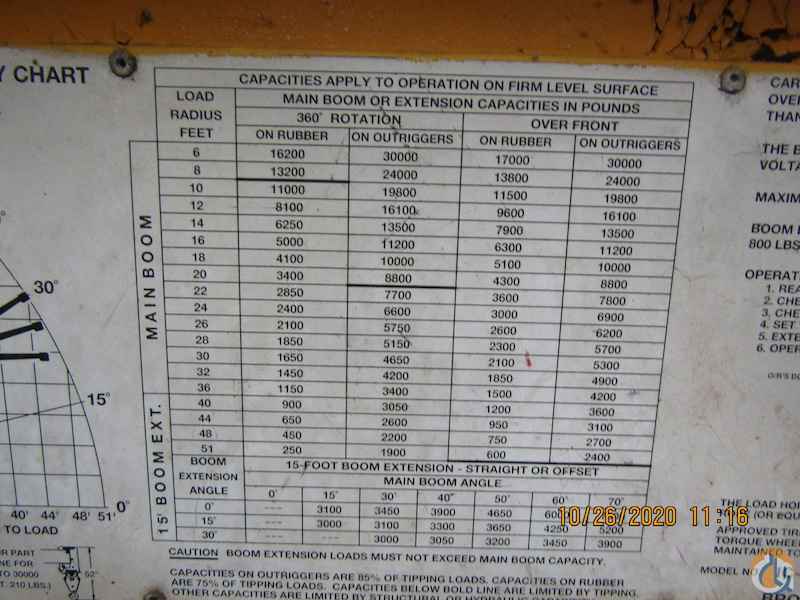 Y CHART
30°
15°
0°
40' 44' 48' 51'
TO LOAD
OR PART
NE FOR
TO 30000
T. 210 LBS.)
52"
CAPACITIES APPLY TO OPERATION ON FIRM LEVEL SURFACE
LOAD RADIUS FEET
MAIN BOOM OR EXTENSION CAPACITIES IN POUNDS
360° ROTATION OVER FRONT
ON RUBBER ON OUTRIGGERS ON RUBBER ON OUTRIGGERS
MAIN BOOM
6 16200 30000 17000 30000
8 13200 24000 13800 24000
10 11000 19800 11500 19800
12 8100 16100 9600 16100
14 6250 13500 7900 13500
16 5000 11200 6300 11200
18 4100 10000 5100 10000
20 3400 8800 4300 8800
22 2850 7700 3600 7800
24 2400 6600 3000 6900
26 2100 5750 2600 6200
28 1850 5150 2300 5700
30 1650 4650 2100 5300
32 1450 4200 1850 4900
36 1150 3400 1500 4200
40 900 3050 1200 3600
44 650 2600 950 3100
48 450 2200 750 2700
51 250 1900 600 2400
15' BOOM EXT.
BOOM EXTENSION ANGLE
15-FOOT BOOM EXTENSION - STRAIGHT OR OFFSET
MAIN BOOM ANGLE
0° 15° 30° 40° 50° 60° 70°
0° ---- 3100 3450 3900 4650
15° ---- 3000 3100 3300 3650 4250 5200
30° ---- ---- 3000 3050 3200 3450 3900
10/26/2020 11:16
CAUTION BOOM EXTENSION LOADS MUST NOT EXCEED MAIN BOOM CAPACITY.
CAPACITIES ON OUTRIGGERS ARE 85% OF TIPPING LOADS. CAPACITIES ON RUBBER
ARE 75% OF TIPPING LOADS. CAPACITIES BELOW BOLD LINE ARE LIMITED BY TIPPING.
OTHER CAPACITIES ARE LIMITED BY STRUCTURAL OR HYDRAULIC
CAR
OVER
THAN
THE B
VOLTA
MAXIM
BOOM
800 LBS.
OPERAT
1. REA
2. CHE
3. CHE
4. SET
5. EXTE
6. OPER
THE LOAD HO
TOR (OR EQU
APPROVED TIR
TORQUE WHEE
MAINTAINED TO
MODEL N
BRO